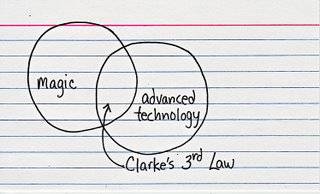 magic
advanced
technology
Clarke's 3rd Law